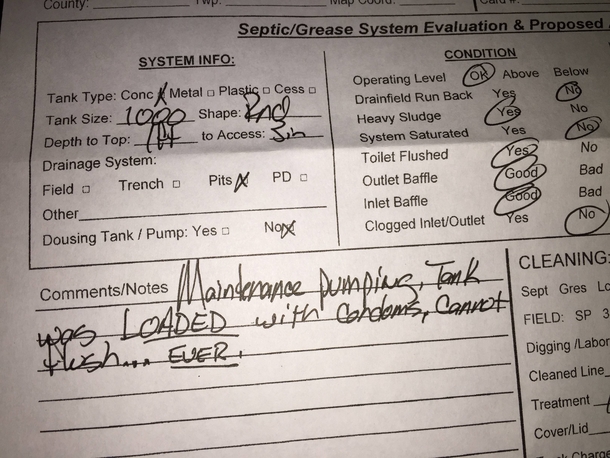 County: Twp: Map Coord:
Septic/Grease System Evaluation & Proposed
SYSTEM INFO:
Tank Type: Conc Metal □ Plastic □ Cess □
Tank Size: 1000 Shape: Rnd
Depth to Top: 1ft to Access:
Drainage System:
Field □ Trench □ Pits PD □
Other
Dousing Tank / Pump: Yes □ No
CONDITION
Operating Level OK Above Below
Drainfield Run Back Yes No
Heavy Sludge Yes No
System Saturated Yes No
Toilet Flushed Yes No
Outlet Baffle Good Bad
Inlet Baffle Good Bad
Clogged Inlet/Outlet Yes No
Comments/Notes Maintenance pumping, Tank
was LOADED with condoms, Cannot
flush... EVER.
CLEANING:
Sept Gres
FIELD: SP 3
Digging /Labor
Cleaned Line
Treatment
Cover/Lid